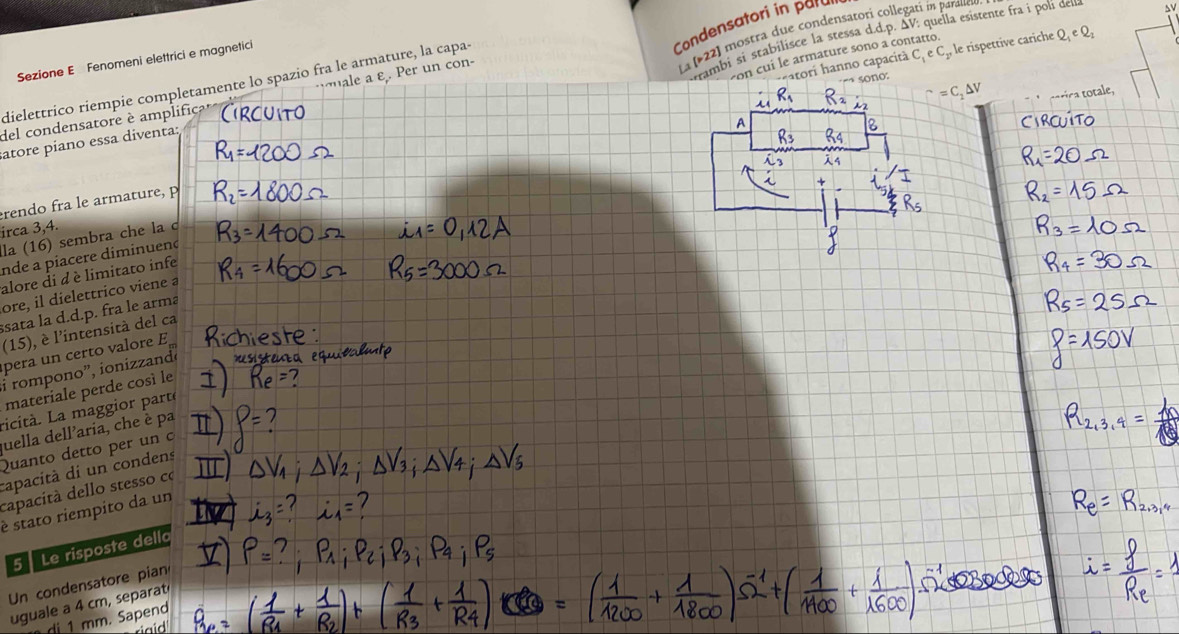 Sezione E Fenomeni elettrici e magnetici
dielettrico riempie completamente lo spazio fra le armature, la capa-
del condensatore è amplifica
uale a εr. Per un con-
satore piano essa diventa:
erendo fra le armature, p
irca 3,4.
lla (16) sembra che la c
nde a piacere diminuend
alore di d è limitato infe
ore, il dielettrico viene a
ssata la d.d.p. fra le arma
(15), è l'intensità del ca
pera un certo valore Em
si rompono", ionizzand
materiale perde così le
ricità. La maggior parte
quella dell'aria, che è pa
Quanto detto per un c
capacità di un condens
capacità dello stesso co
è stato riempito da un
5 Le risposte dello
Un condensatore pian
uguale a 4 cm, separat
di 1 mm. Sapend
Condensatori in parall
La [▸22] mostra due condensatori collegati in parallelo.
trambi si stabilisce la stessa d.d.p. ΔV: quella esistente fra i poli della
con cui le armature sono a contatto.
atori hanno capacità C1 e C2, le rispettive cariche Q1 e Q2
sono:
= C2 ΔV
rica totale,
ΔV
CIRCUITO
R1=1200 Ω
R2=1800 Ω
R3=1400 Ω i1=0,12A
R4=1600 Ω R5=3000 Ω
i1 R1 R2 i2
A B
R3 R4
i3 i4
i + - i5/I
R5
f
Richieste:
resistenza equivalente
I) Re=?
II) f=?
III) ΔV1; ΔV2; ΔV3; ΔV4; ΔV5
IV) i3=? i1=?
V) P=?; P1; P2; P3; P4; P5
Re= (1/R1 + 1/R2) + (1/R3 + 1/R4) = (1/1200 + 1/1800) Ω-1 + (1/1400 + 1/1600) Ω-1
CIRCUITO
R1=20 Ω
R2=15 Ω
R3=10 Ω
R4=30 Ω
R5=25 Ω
f=150V
R2,3,4 =
Re = R2,3,4
i = f/Re = 1